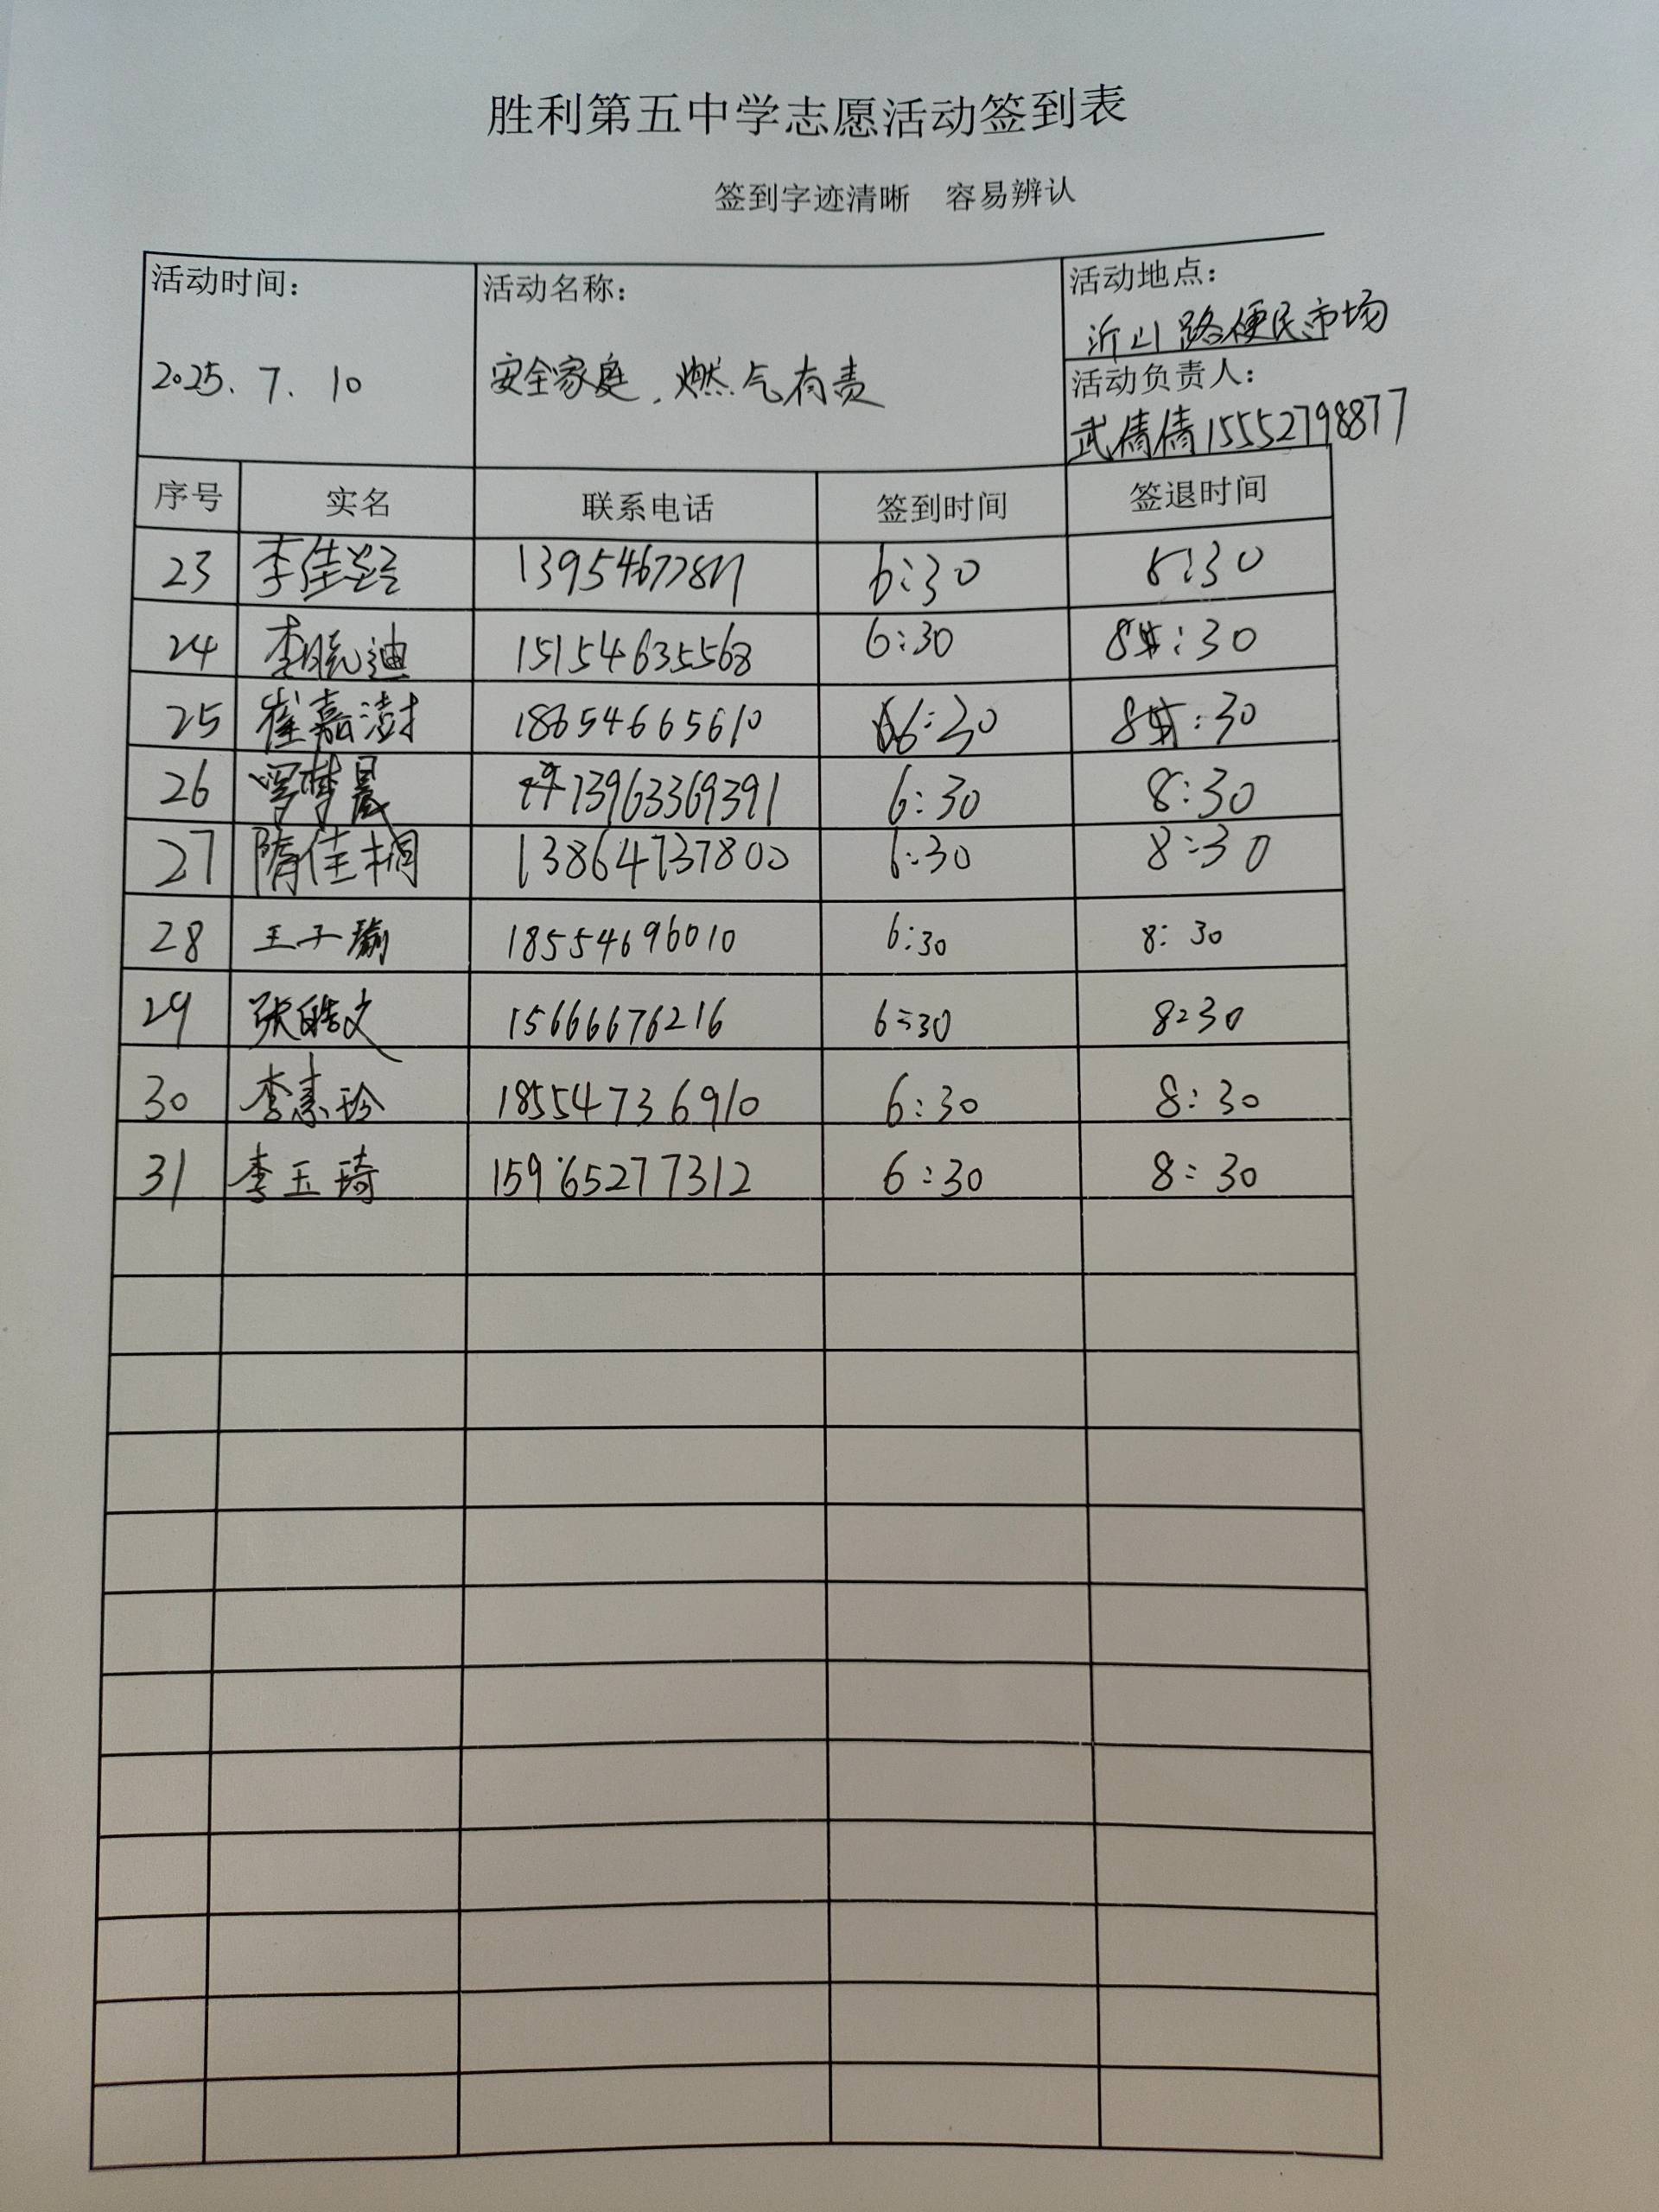 胜利第五中学志愿活动签到表
签到字迹清晰 容易辨认
活动时间: 活动名称: 活动地点:
沂山路便民市场
2025.7.10 安全家庭,燃气有责
活动负责人:
武倩倩15552798877
序号 实名 联系电话 签到时间 签退时间
23 李佳 6:30 8:30
24 李晓迪 15154635568 6:30 8:30
25 崔嘉澍 18654665610 6:30 8:30
26 梦晨 13963369391 6:30 8:30
27 隋佳桐 13864737800 6:30 8:30
28 王子瑜 18554696010 6:30 8:30
29 张皓文 15666676216 6:30 8:30
30 李素珍 18554736910 6:30 8:30
31 李玉琦 15965277312 6:30 8:30